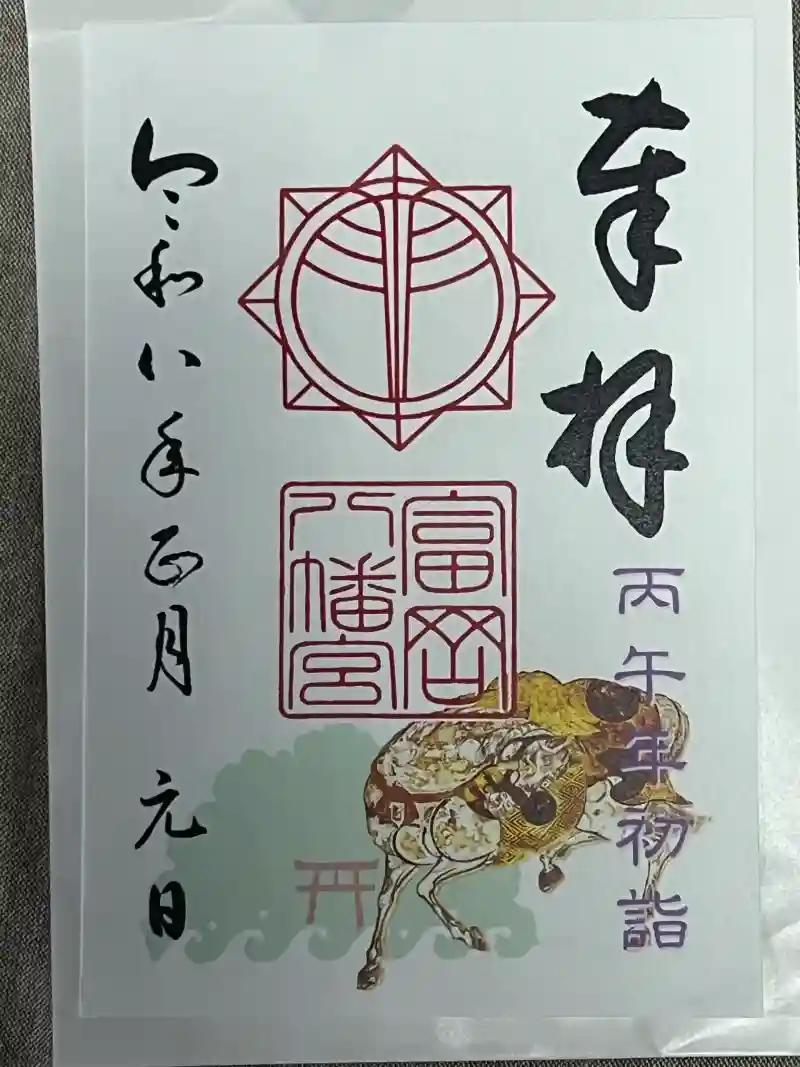 奉拝
丙午年初詣
富岡
八幡宮
令和八年正月 元日